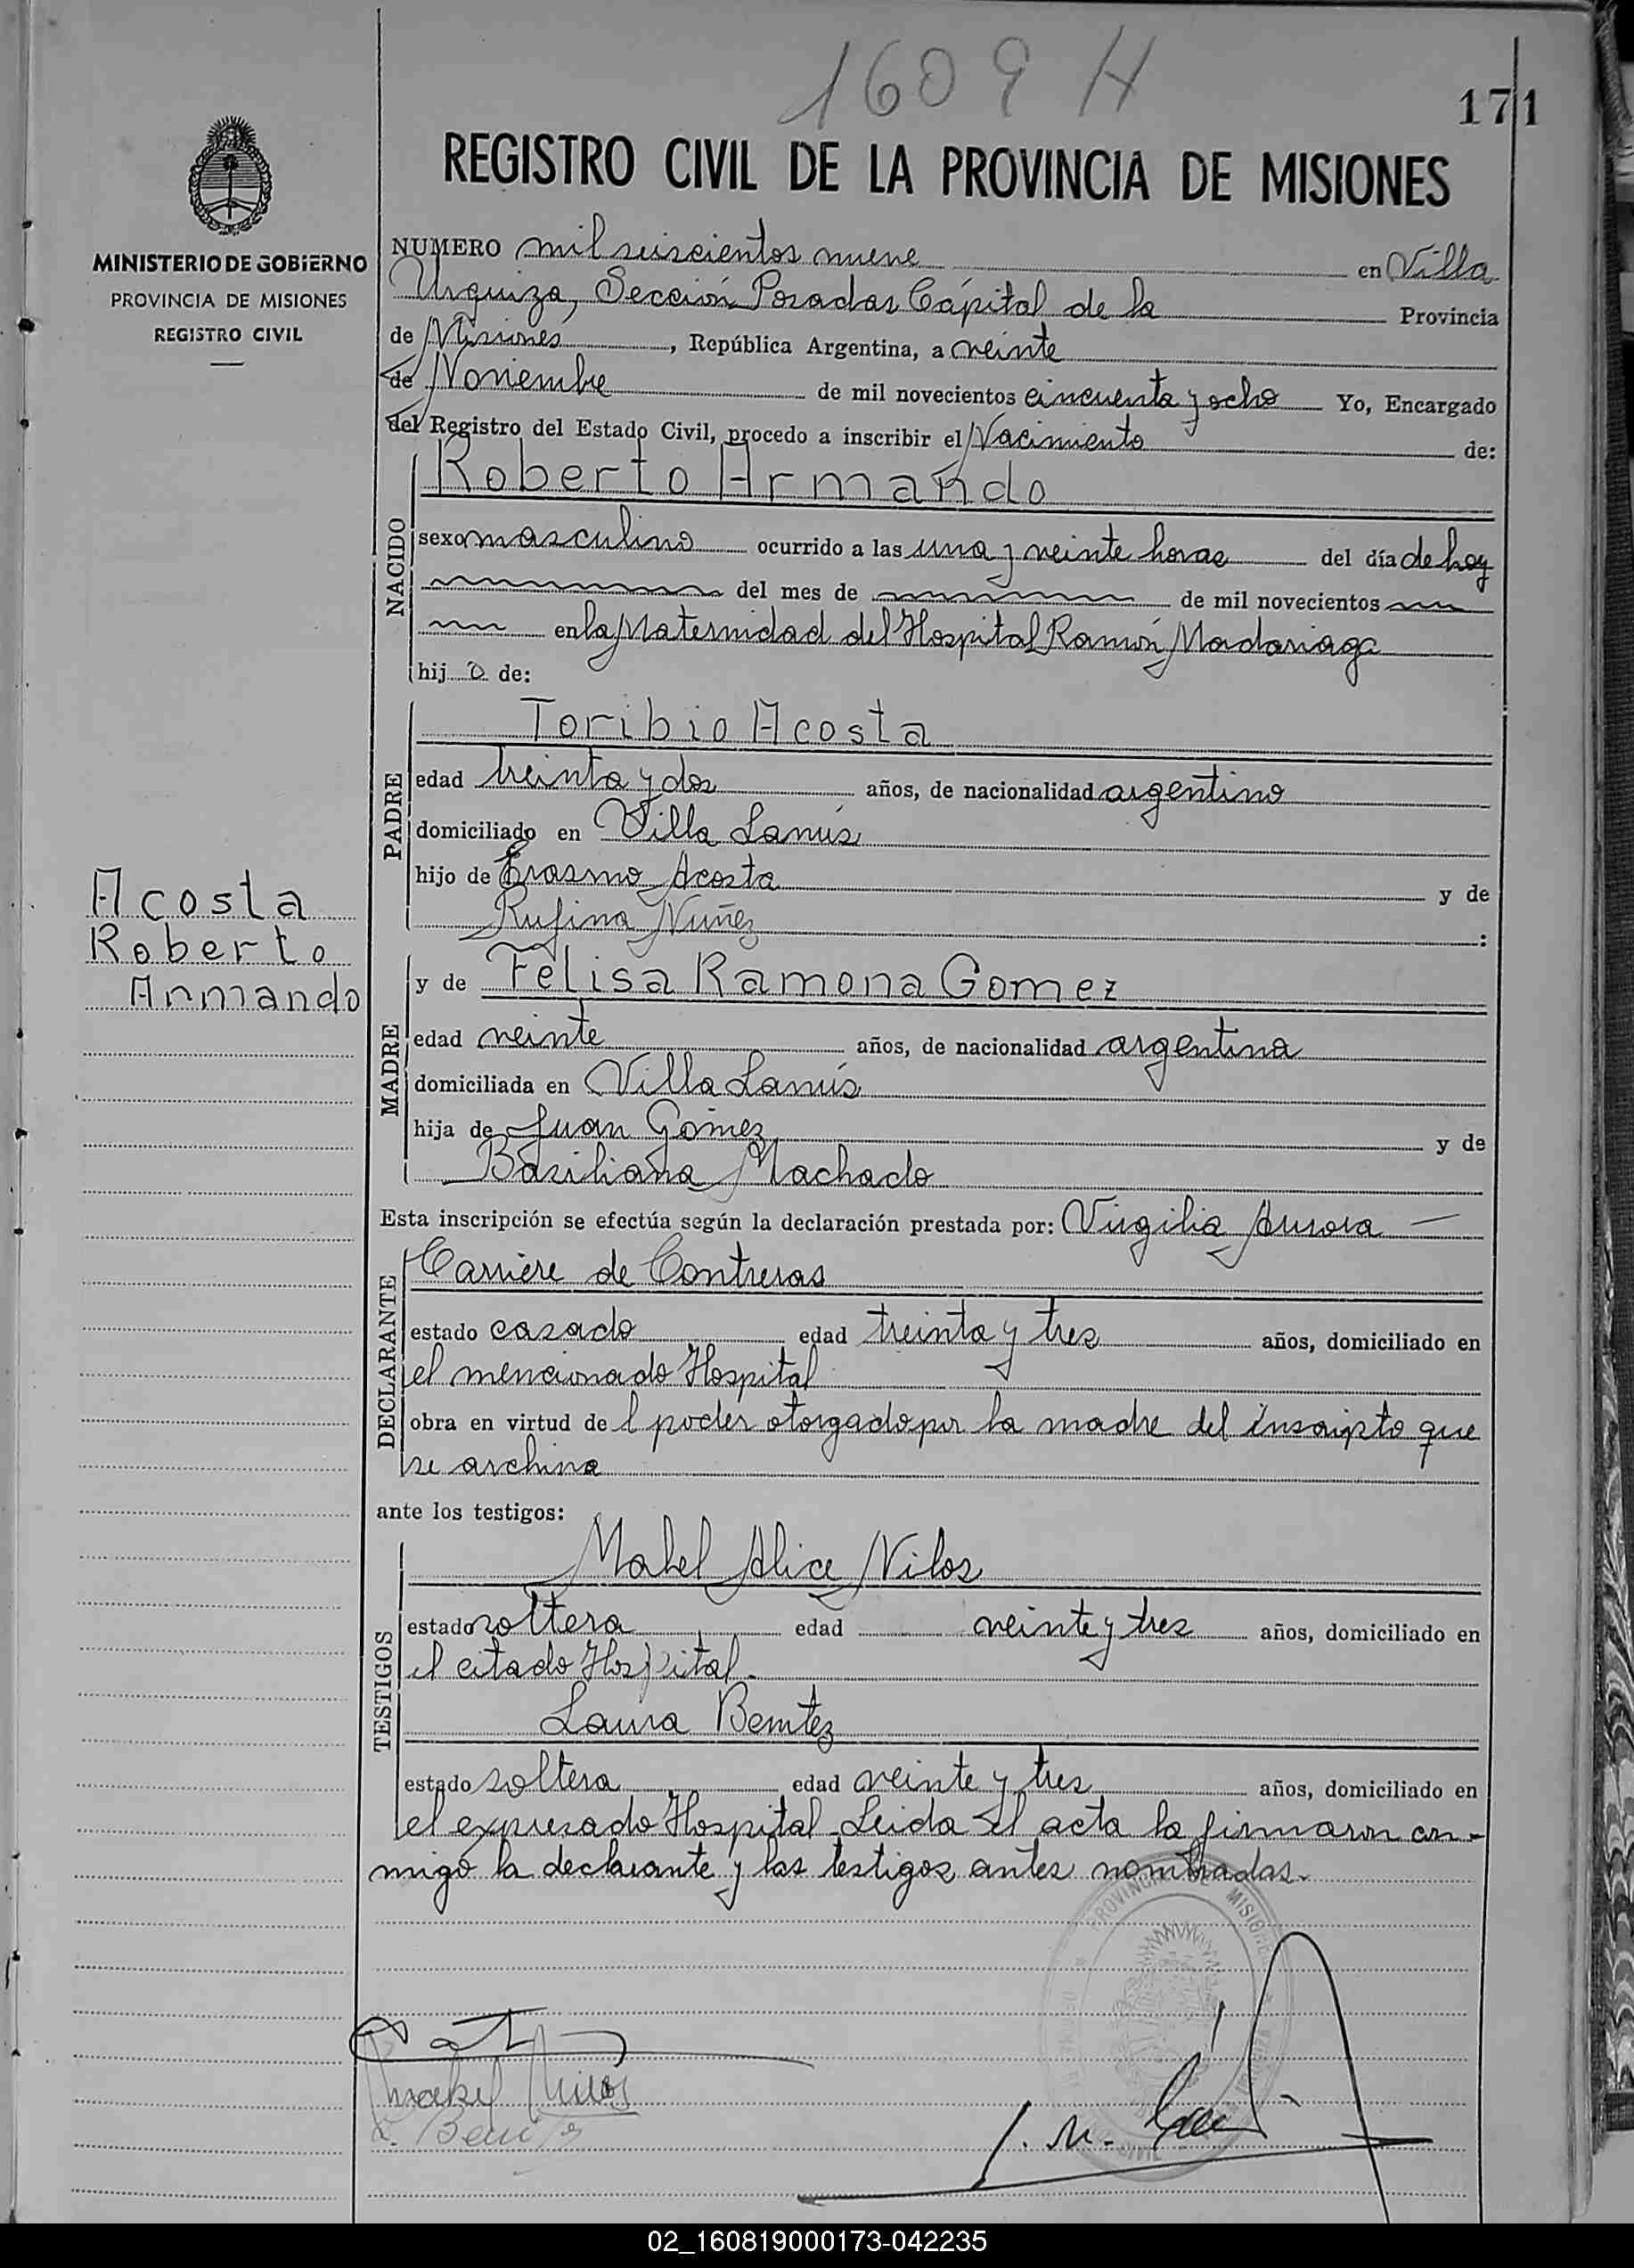 1609 H
171
MINISTERIO DE GOBIERNO
PROVINCIA DE MISIONES
REGISTRO CIVIL
REGISTRO CIVIL DE LA PROVINCIA DE MISIONES
NUMERO mil seiscientos nueve en Villa
Urquiza, Sección Posadas Cápital de la Provincia
de Misiones, República Argentina, a veinte
de Noviembre de mil novecientos cincuenta y ocho Yo, Encargado
del Registro del Estado Civil, procedo a inscribir el Nacimiento de:
NACIDO
Roberto Armando
sexo masculino ocurrido a las una y veinte horas del día de hoy
del mes de de mil novecientos
en la Maternidad del Hospital Ramón Madariaga
hij o de:
PADRE
Toribio Acosta
edad treinta y dos años, de nacionalidad argentino
domiciliado en Villa Lanús
hijo de Erasmo Acosta y de
Rufina Nuñez :
Acosta
Roberto
Armando
MADRE
y de Felisa Ramona Gomez
edad veinte años, de nacionalidad argentina
domiciliada en Villa Lanús
hija de Juan Gómez y de
Basiliana Machado
Esta inscripción se efectúa según la declaración prestada por: Virgilia Aurora —
DECLARANTE
Carriere de Contreras
estado casado edad treinta y tres años, domiciliado en
el mencionado Hospital
obra en virtud de l poder otorgado por la madre del inscripto que
se archiva
ante los testigos:
TESTIGOS
Mabel Alice Nilos
estado soltera edad veinte y tres años, domiciliado en
el citado Hospital.
Laura Benitez
estado soltera edad veinte y tres años, domiciliado en
el expresado Hospital. Leida el acta la firmaron con-
migo la declarante y las testigos antes nombradas.
PROVINCIA DE MISIONES
CIVIL
Mabel Nilos
L. Benitez
02_160819000173-042235